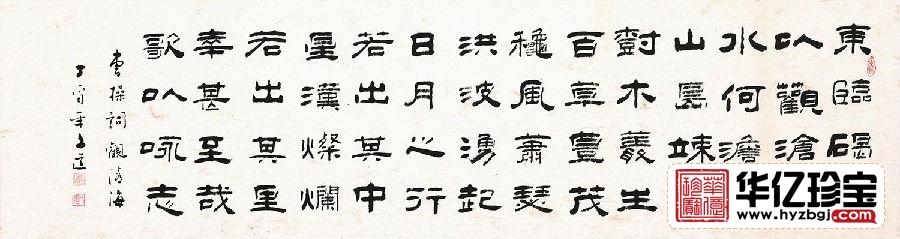 東臨碣
以觀滄
水何澹
山島竦
樹木叢生
百草豐茂
穐風蕭瑟
洪波湧起
日月之行
若出其中
星漢燦爛
若出其里
幸甚至哉
歌以咏志
曹操詞觀滄海
丁酉年
华亿珍宝
www.hyzbgj.com